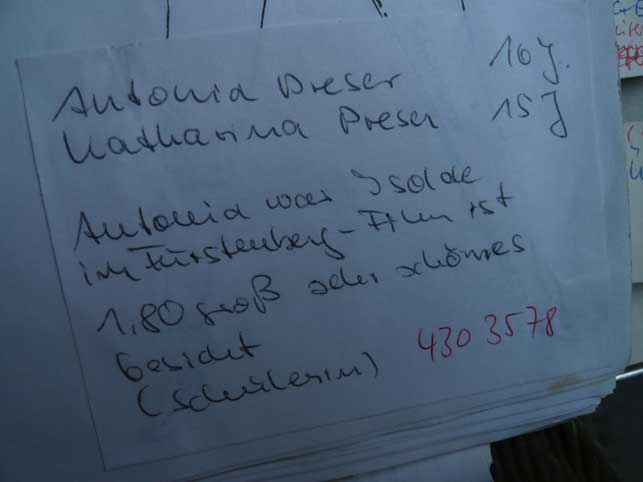 Antonia Preser 16 J.
Katharina Preser 15 J
Antonia war Isolde
im Fürstenberg-Film ist
1,80 groß sehr schönes
Gesicht
(Schülerin) 430 3578